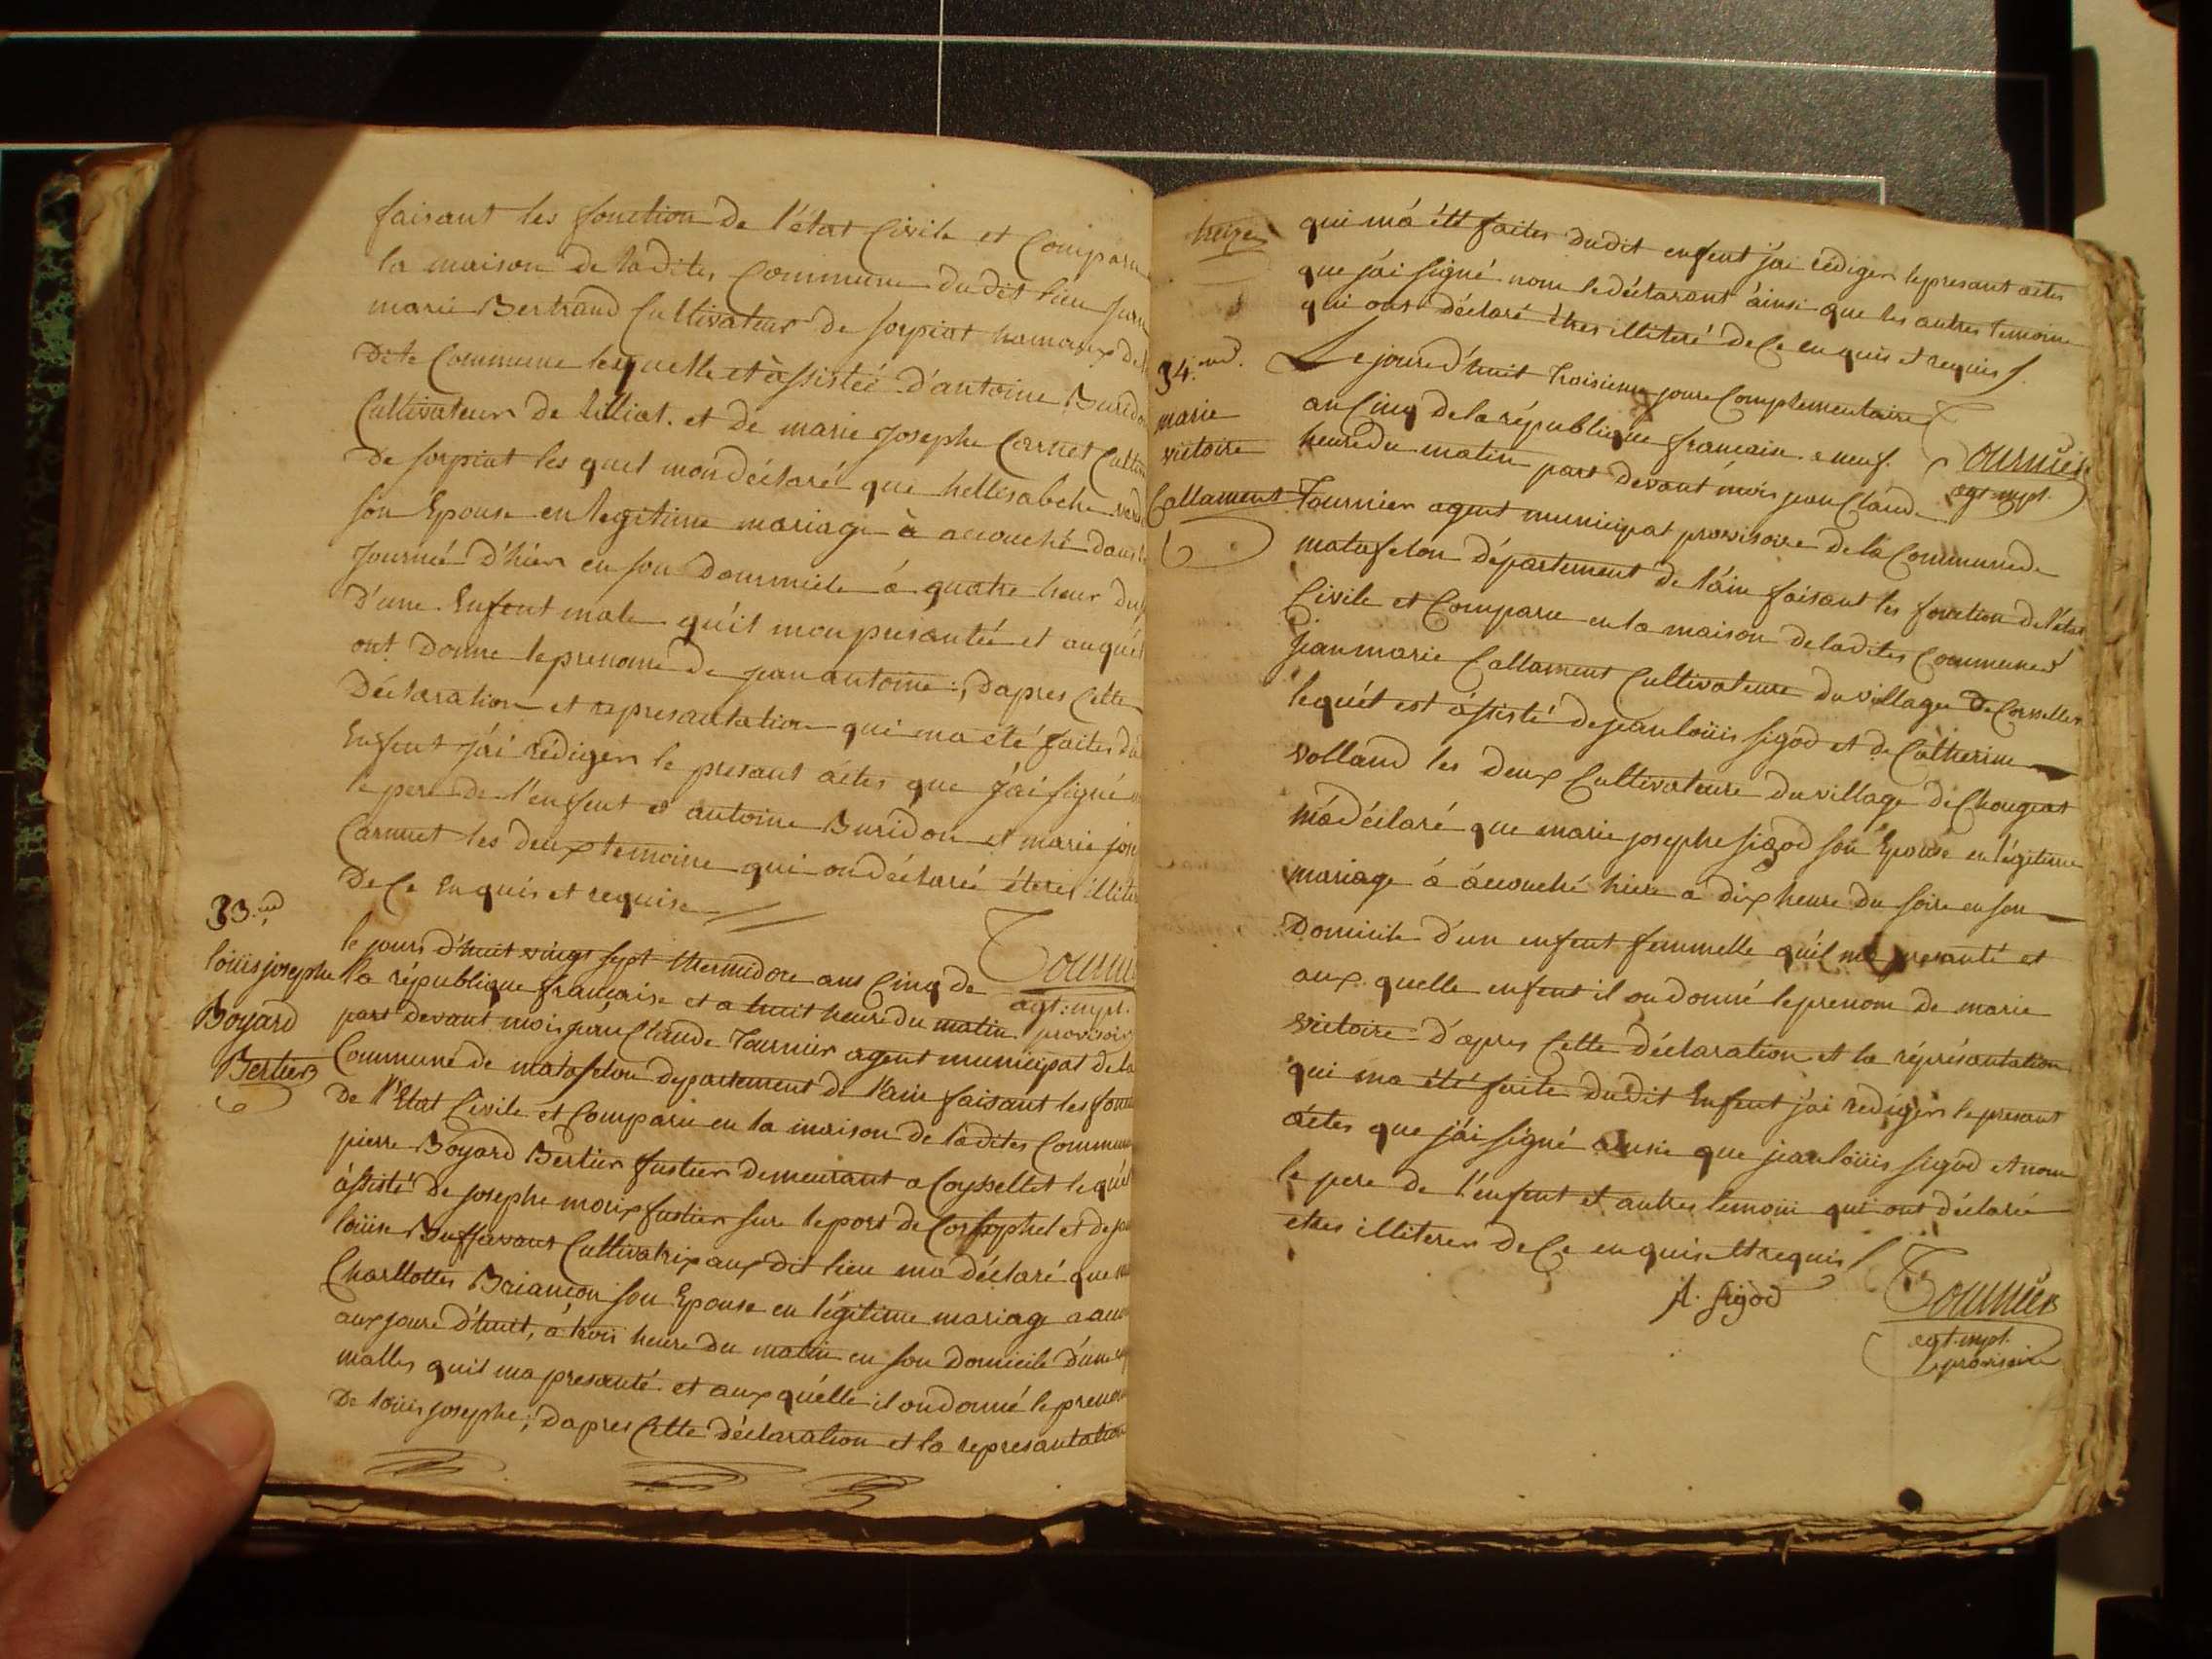 faisant les fonction de l'état Civile et Compara
la maison de ladites Commune dudit lieu jean
marie Bertrand Cultivateur de sorpiat hamaux de
dite Commune lesquelle et assisteé d'antoine Buridon
Cultivateur de lilliat. et de marie Josephe Carnet Culti
de sorpiat les quel mon déclaré que hellisabethe
son Epouse en legitime mariage à accouché dans la
Journeé d'hier en son doumicile á quatre heur du
d'une Enfent male qu'il mon presanteé et auquél
ont donne leprenome de jean antoine:, dapres Cette
Déclaration et representation qui ma été faites du
Enfent j'ái rédiger le presant actes que j'ái signé
le pere de l'enfent et antoine Buridon et marie jos
Carnnet les deux temoine qui on déclareé étere illiter
de Ce Enquis et requise
Tournier
agt: mpl.
provisoire
33.me
louis josephe
Boyard
Bertier
le jours d'huit vingt sept thermidore ans Cinq de
la république française et a huit heure du matin
part devant mois jean Claude Tournier agent municipat de la
Commune de matafelon departement de l'ain faisant les fonc
de l'Etat Civile et Comparu en la maison de ladites Commune
pierre Boyard Bertier fustier demeurant a Coysellet lequél
ássisté de josephe moux fustier sure leport de Corsophet et de
loüise Buffavant Cultivatrix aux dit lieu má déclaré que
Charllottes Briançon son Epouse en légitime mariage a acc
aux joure d'huit, á trois heure du matin en son domicile d'une
malles quil ma presenté et aux quélle il ondonné leprenom
de loüis josephe; dapres Cette déclaration et la represantation
qui má étt faites dudit enfent j'ai rédiger lepresant actes
que j'ái signé nom le déclarant áinsi que les autres temoin
qui ont déclaré êtres illiteré de Ce enquis et requis
Tournier
agt. mpl.
34.me
marie
victoire
Callament
Le joure d'huit troisieme joure Complementaire
an Cinq de la république francain a neuf
heure du matin part devant móis jean Claude
Tournier agent municipat provisoire de la Commune de
matafelon département de l'áin faisant les fonction de l'état
Civile et Comparu en la maison de ladites Commune
jean marie Callament Cultivateure du village de Corcelles
lequél est ássisté de jean loüis sigod et de Catherine
volland les deux Cultivateure du village de Chougeat
má déclaré que marie josephe sigod son Epouse en légitime
mariage á áccouché hiere a dix heure du soire en son
Domicile d'un enfent femmelle qu'il má presenté et
aux quelle enfent il on donné leprenom de marie
victoire d'apres Cette déclaration et la représantation
qui ma été faite dudit Enfent j'ái rediger lepresant
áctes que j'ái signé ainsie que jean loüis sigod et nom
le pere de l'enfent et autres temoin qui ont déclaré
etres illiterer de Ce enquis et requis
sigod
Tournier
agt. mpl.
provisoire